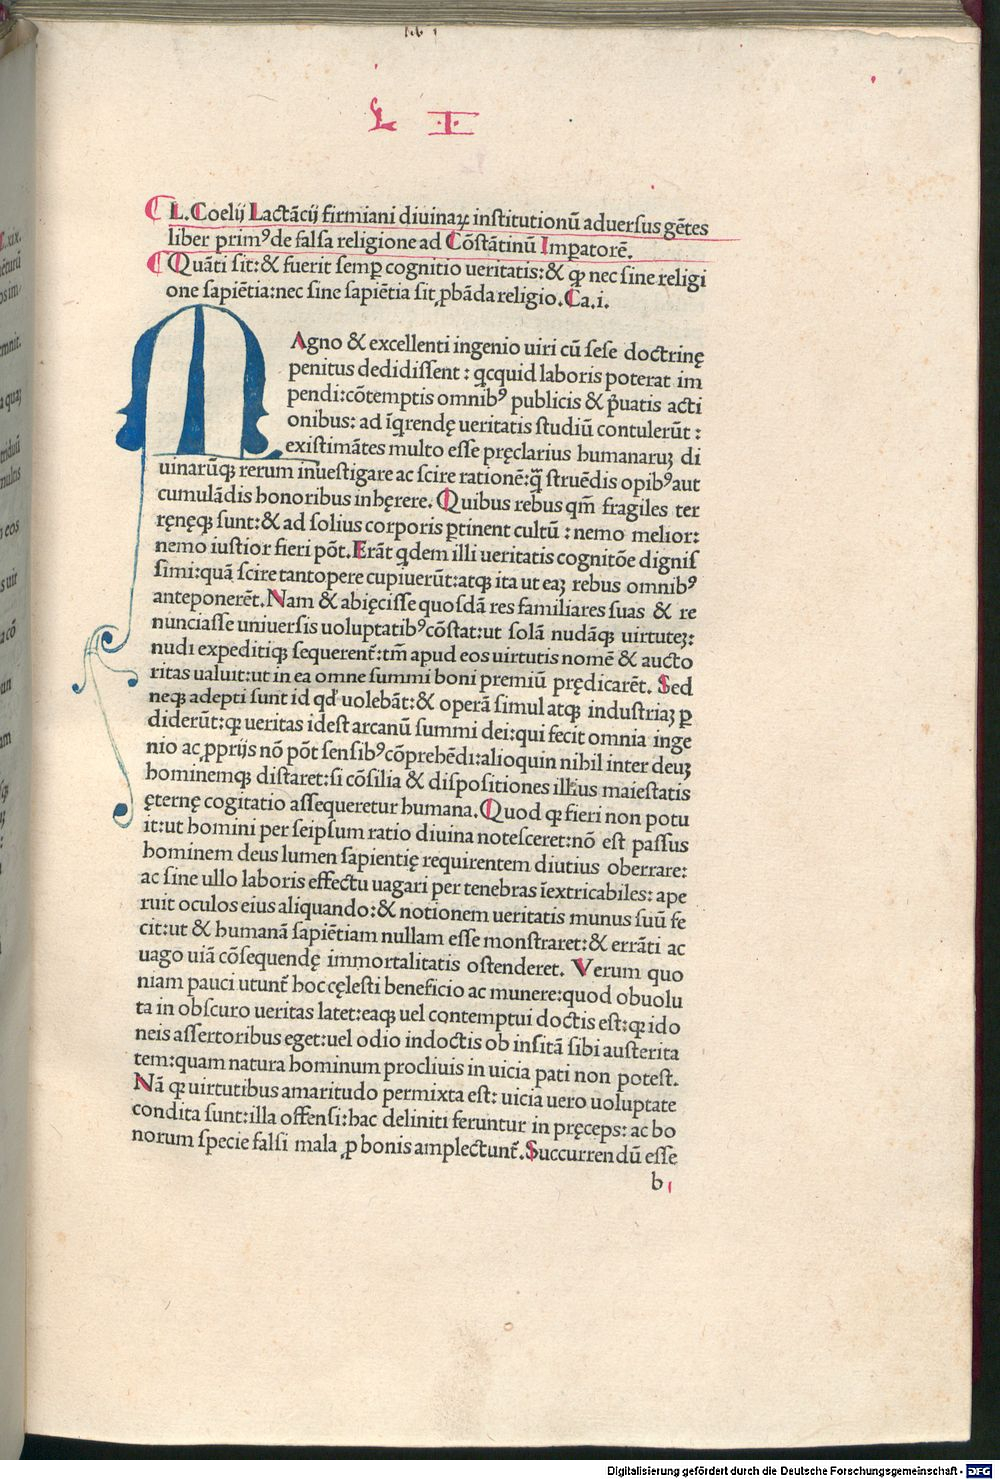 L I
L. Coelij Lactãcij firmiani diuinaꝝ institutionũ aduersus gẽtes
liber primꝰ de falsa religione ad Cõstãtinũ Imꝑatorẽ.
Quãti sit: & fuerit semꝑ cognitio ueritatis: & ꝙ nec sine religi
one sapiẽtia: nec sine sapiẽtia sit ꝓbãda religio. Ca. i.
MAgno & excellenti ingenio uiri cũ sese doctrinę
penitus dedidissent: qcquid laboris poterat im
pendi: cõtemptis omnibꝰ publicis & p̃uatis acti
onibus: ad ĩqrendę ueritatis studiũ contulerũt:
existimãtes multo esse pręclarius humanaruꝫ di
uinarũqꝫ rerum inuestigare ac scire rationẽ: q̃ struẽdis opibꝰ aut
cumulãdis honoribus inhęrere. Quibus rebus qm̃ fragiles ter
ręnęqꝫ sunt: & ad solius corporis ꝑtinent cultũ: nemo melior:
nemo iustior fieri põt. Erãt qdem illi ueritatis cognitõe dignis
simi: quã scire tantopere cupiuerũt: atqꝫ ita ut eaꝫ rebus omnibꝰ
anteponerẽt. Nam & abięcisse quosdã res familiares suas & re
nunciasse uniuersis uoluptatibꝰ cõstat: ut solã nudãqꝫ uirtuteꝫ:
nudi expeditiqꝫ sequerent̃: tm̃ apud eos uirtutis nomẽ & aucto
ritas ualuit: ut in ea omne summi boni premiũ prędicarẽt. Sed
neqꝫ adepti sunt id qd̕ uolebãt: & operã simul atqꝫ industriaꝫ ꝑ
diderũt: ꝙ ueritas idest arcanũ summi dei: qui fecit omnia inge
nio ac ꝓprijs nõ põt sensibꝰ cõprehẽdi: alioquin nihil inter deuꝫ
hominemqꝫ distaret: si cõsilia & dispositiones illius maiestatis
ęternę cogitatio assequeretur humana. Quod ꝙ fieri non potu
it: ut homini per seipsum ratio diuina notesceret: nõ est passus
hominem deus lumen sapientię requirentem diutius oberrare:
ac sine ullo laboris effectu uagari per tenebras ĩextricabiles: ape
ruit oculos eius aliquando: & notionem ueritatis munus suũ fe
cit: ut & humanã sapiẽtiam nullam esse monstraret: & errãti ac
uago uiã cõsequendę immortalitatis ostenderet. Verum quo
niam pauci utunt̃ hoc cęlesti beneficio ac munere: quod obuolu
ta in obscuro ueritas latet: eaqꝫ uel contemptui doctis est: ꝙ ido
neis assertoribus eget: uel odio indoctis ob insitã sibi austerita
tem: quam natura hominum procliuis in uicia pati non potest.
Nã ꝙ uirtutibus amaritudo permixta est: uicia uero uoluptate
condita sunt: illa offensi: hac deliniti feruntur in pręceps: ac bo
norum specie falsi mala ꝓ bonis amplectunt̃. Succurrendũ esse
b
Digitalisierung gefördert durch die Deutsche Forschungsgemeinschaft - DFG